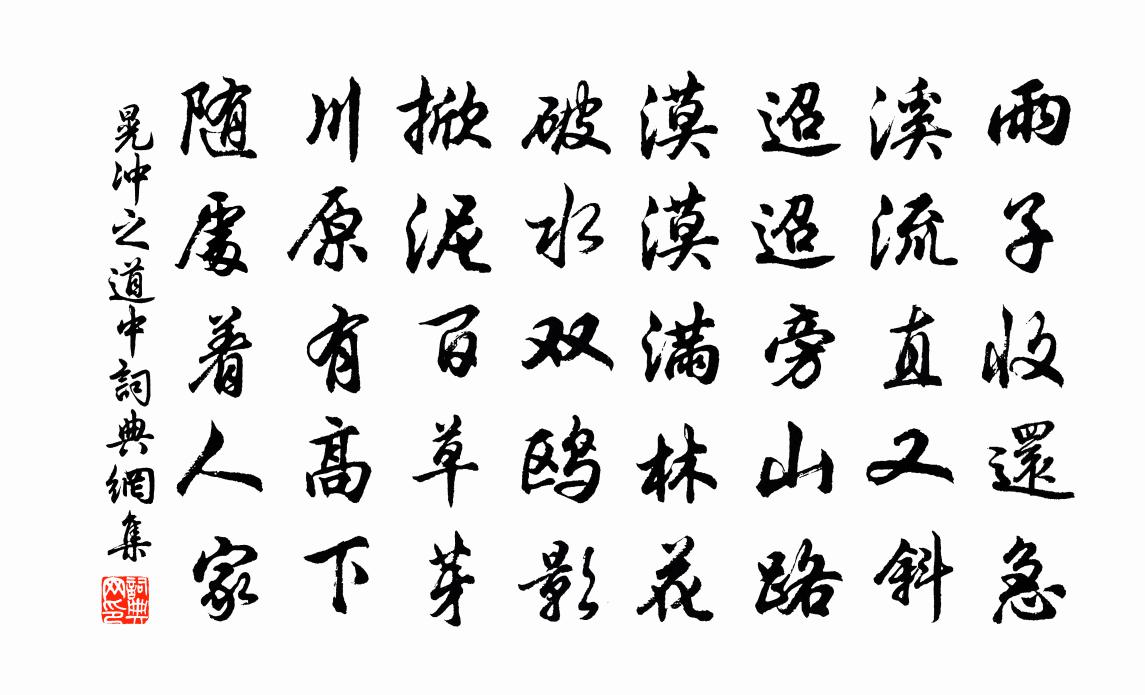 雨子收還急
溪流直又斜
迢迢旁山路
漠漠滿林花
破水双鸥影
掀泥百草芽
川原有高下
随處着人家
晃沖之道中詞典網集
詞典网印